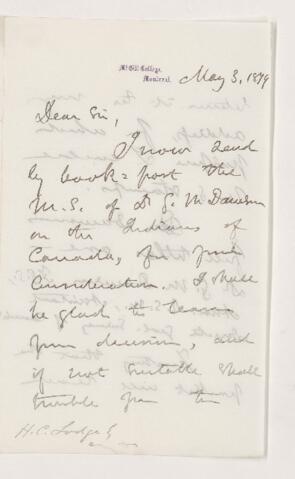 McGill College,
Montreal.
May 3, 1879
Dear Sir,
I now send
by book-post the
M.S. of Dr G. M Dawson
on the Indians of
Canada, for your
Consideration. I shall
be glad to learn
your decision, and
if not suitable shall
trouble you to
H. C. Lodge